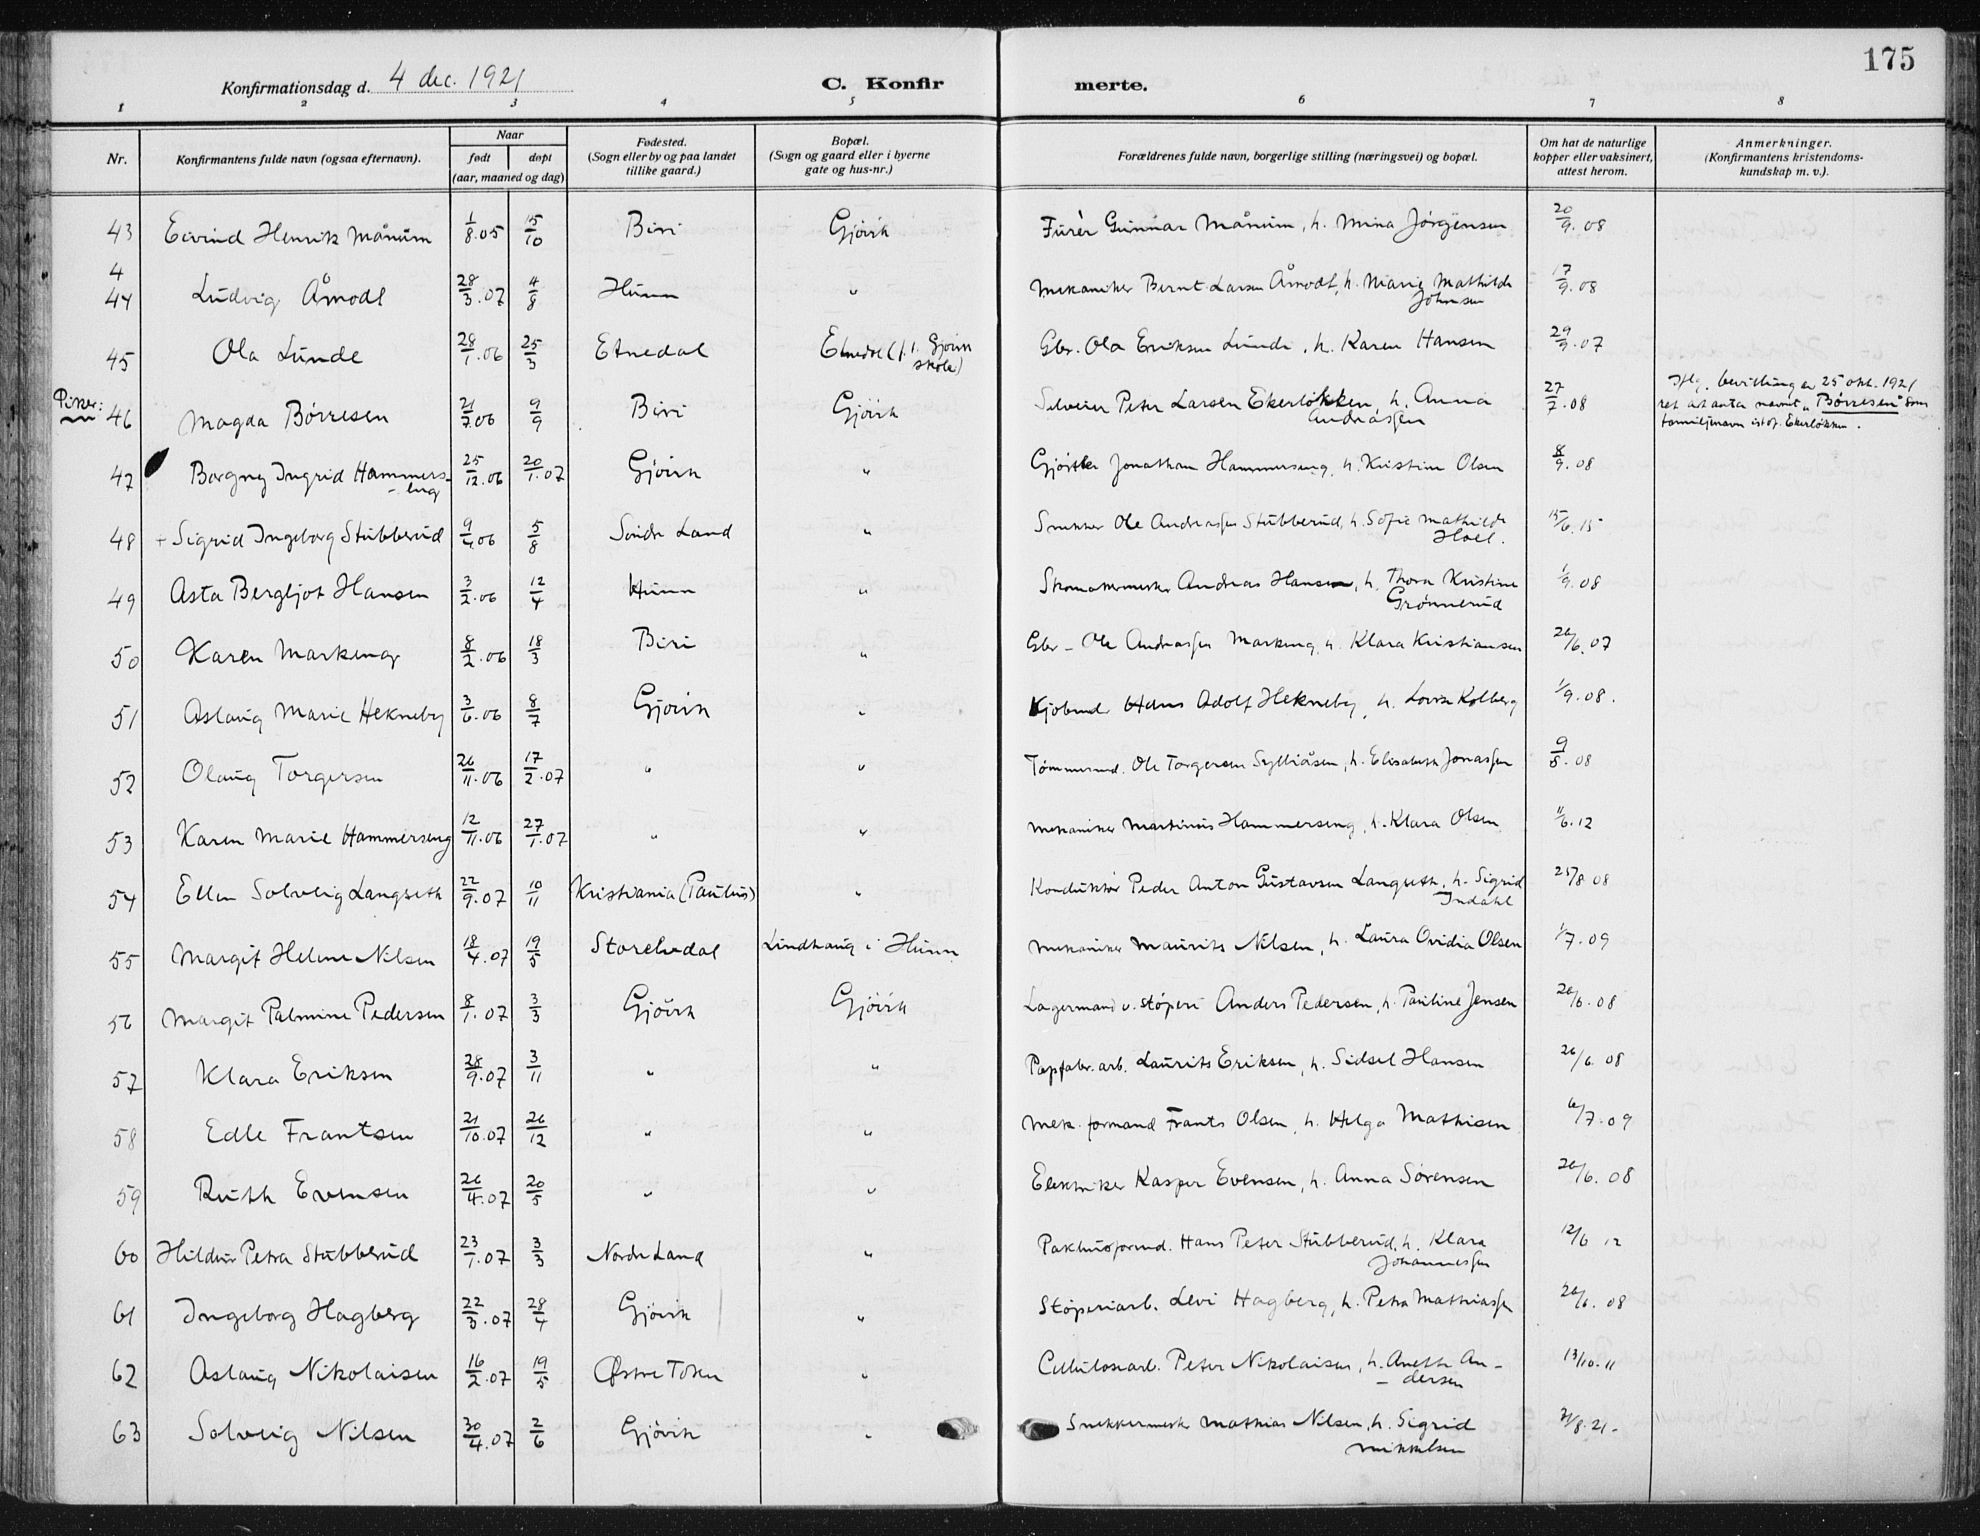 175
Konfirmationsdag d. 4 dec. 1921
C. Konfir merte.
1 2 3 4 5 6 7 8
Nr.
Konfirmantens fulde navn (ogsaa efternavn).
Naar
født døpt
(aar, maaned og dag)
Fødested.
(Sogn eller by og paa landet
tillike gaard.)
Bopæl.
(Sogn og gaard eller i byerne
gate og hus-nr.)
Forældrenes fulde navn, borgerlige stilling (næringsvei) og bopæl.
Om hat de naturlige
kopper eller vaksinert,
attest herom.
Anmerkninger.
(Konfirmantens kristendoms-
kundskap m. v.).
43 Eivind Henrik Månum 1/8.05 15/10 Biri Gjövik Furér Gunnar Månum, h. Mina Jörgensen 20/9.08
4
44 Ludvig Åmodt 28/3.07 4/8 Hunn " Mekaniker Bernt Larsen Åmodt, h. Marie Mathilde
Johnsen 17/9.08
45 Ola Lunde 28/1.06 25/3 Etnedal Etnedal (f. t. Gjövik
skole) Gbr. Ola Eriksen Lunde, h. Karen Hansen 29/9.07
Piker:
46 Magda Börresen 21/7.06 9/9 Biri Gjövik Peter Larsen Ekerlökken, h. Anna
Andreassen 27/7.08 Iflg. bevilling av 25 okt. 1921
ret at anta navnet "Börresen" som
familjenavn ist.f. Ekerløkken.
47 Borgny Ingrid Hammers-
-eng 25/12.06 20/1.07 Gjövik " Gjörtler Jonathan Hammerseng, h. Kristine Olsen 8/9.08
48 + Sigrid Ingeborg Stubberud 9/4.06 5/8 Söndre Land " Snekker Ole Andreassen Stubberud, h. Sofie Mathilde
Hoel. 15/6.15
49 Asta Bergljot Hansen 3/2.06 12/4 Hunn " Skomakermester Andreas Hansen, h. Thora Kristine
Grönnerud 1/9.08
50 Karen Markeng 8/2.06 18/3 Biri " Gbr. Ole Andreassen Markeng, h. Klara Kristiansen 26/6.07
51 Aslaug Marie Hekneby 3/6.06 8/7 Gjövik " Kjöbmd. Hans Adolf Hekneby, h. Lovise Kolberg 1/9.08.
52 Olaug Torgersen 26/11.06 17/2.07 " " Tömmermd. Ole Torgersen Sylliåsen, h. Elisabeth Jonassen 9/8.08
53 Karen Marie Hammerseng 12/11.06 27/1.07 " " Mekaniker Martinius Hammerseng, h. Klara Olsen 11/6.12
54 Ellen Solveig Langseth 22/9.07 10/11 Kristiania (Paulus) " Konduktör Peder Anton Gustavsen Langseth, h. Sigrid
Indahl 25/8 08
55 Margit Helene Nilsen 18/4.07 19/5 Storelvedal Lindhaug i Hunn Mekaniker Maurits Nilsen, h. Laura Ovidia Olsen 1/7.09
56 Margit Palmine Pedersen 8/1.07 3/3 Gjövik Gjövik Lagermand v. støperi Anders Pedersen, h. Pauline Jensen 26/6.08
57 Klara Eriksen 28/9.07 3/11 " " Papfabr. arb. Laurits Eriksen, h. Sidsel Hansen 26/6.08
58 Edle Frantsen 21/10.07 26/12 " " Mek. formand Frants Olsen, h. Helga Mathisen 6/7.09
59 Ruth Evensen 26/4.07 20/5 " " Elektriker Kasper Evensen, h. Anna Sörensen 26/6.08
60 Hildur Petra Stubberud 23/1.07 3/3 Nordre Land " Pakhusformd. Hans Peter Stubberud, h. Klara
Johannessen 12/6 12
61 Ingeborg Hagberg 22/3.07 28/4 Gjövik " Støperiarb. Levi Hagberg, h. Petra Mathiassen 26/6.08
62 Aslaug Nikolaisen 16/2.07 19/5 Østre Toten " Cellulosearb. Peter Nikolaisen, h. Anette An-
-dersen 13/10.11
63 Solveig Nilsen 30/4.07 2/6 Gjövik " Snekkermester Mathias Nilsen, h. Sigrid
Mikkelsen 31/8.21.